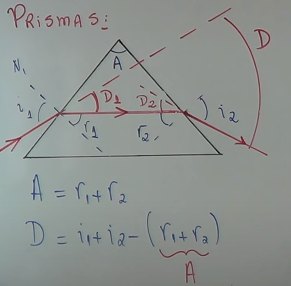 PRISMAS:
D
A
N₁
i₁
D₁
D₂
i₂
r₁
r₂
A = r₁ + r₂
D = i₁ + i₂ - (r₁ + r₂)
A